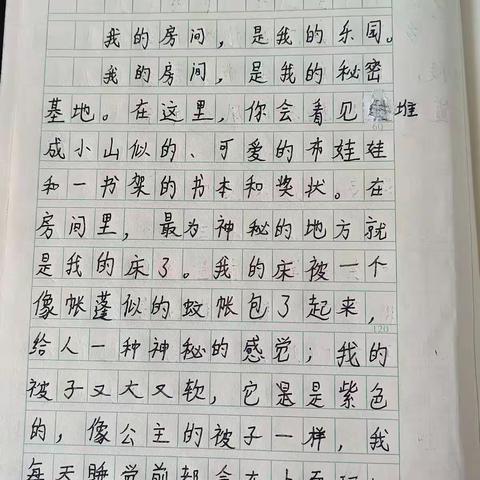 我的房间，是我的乐园。
我的房间，是我的秘密
基地。在这里，你会看见堆
60
成小山似的、可爱的布娃娃
和一书架的书本和奖状。在
房间里，最为神秘的地方就
是我的床了。我的床被一个
像帐蓬似的蚊帐包了起来，
120
给人一种神秘的感觉；我的
被子又大又软，它是是紫色
的，像公主的被子一样，我
每天睡觉前都会在上面玩